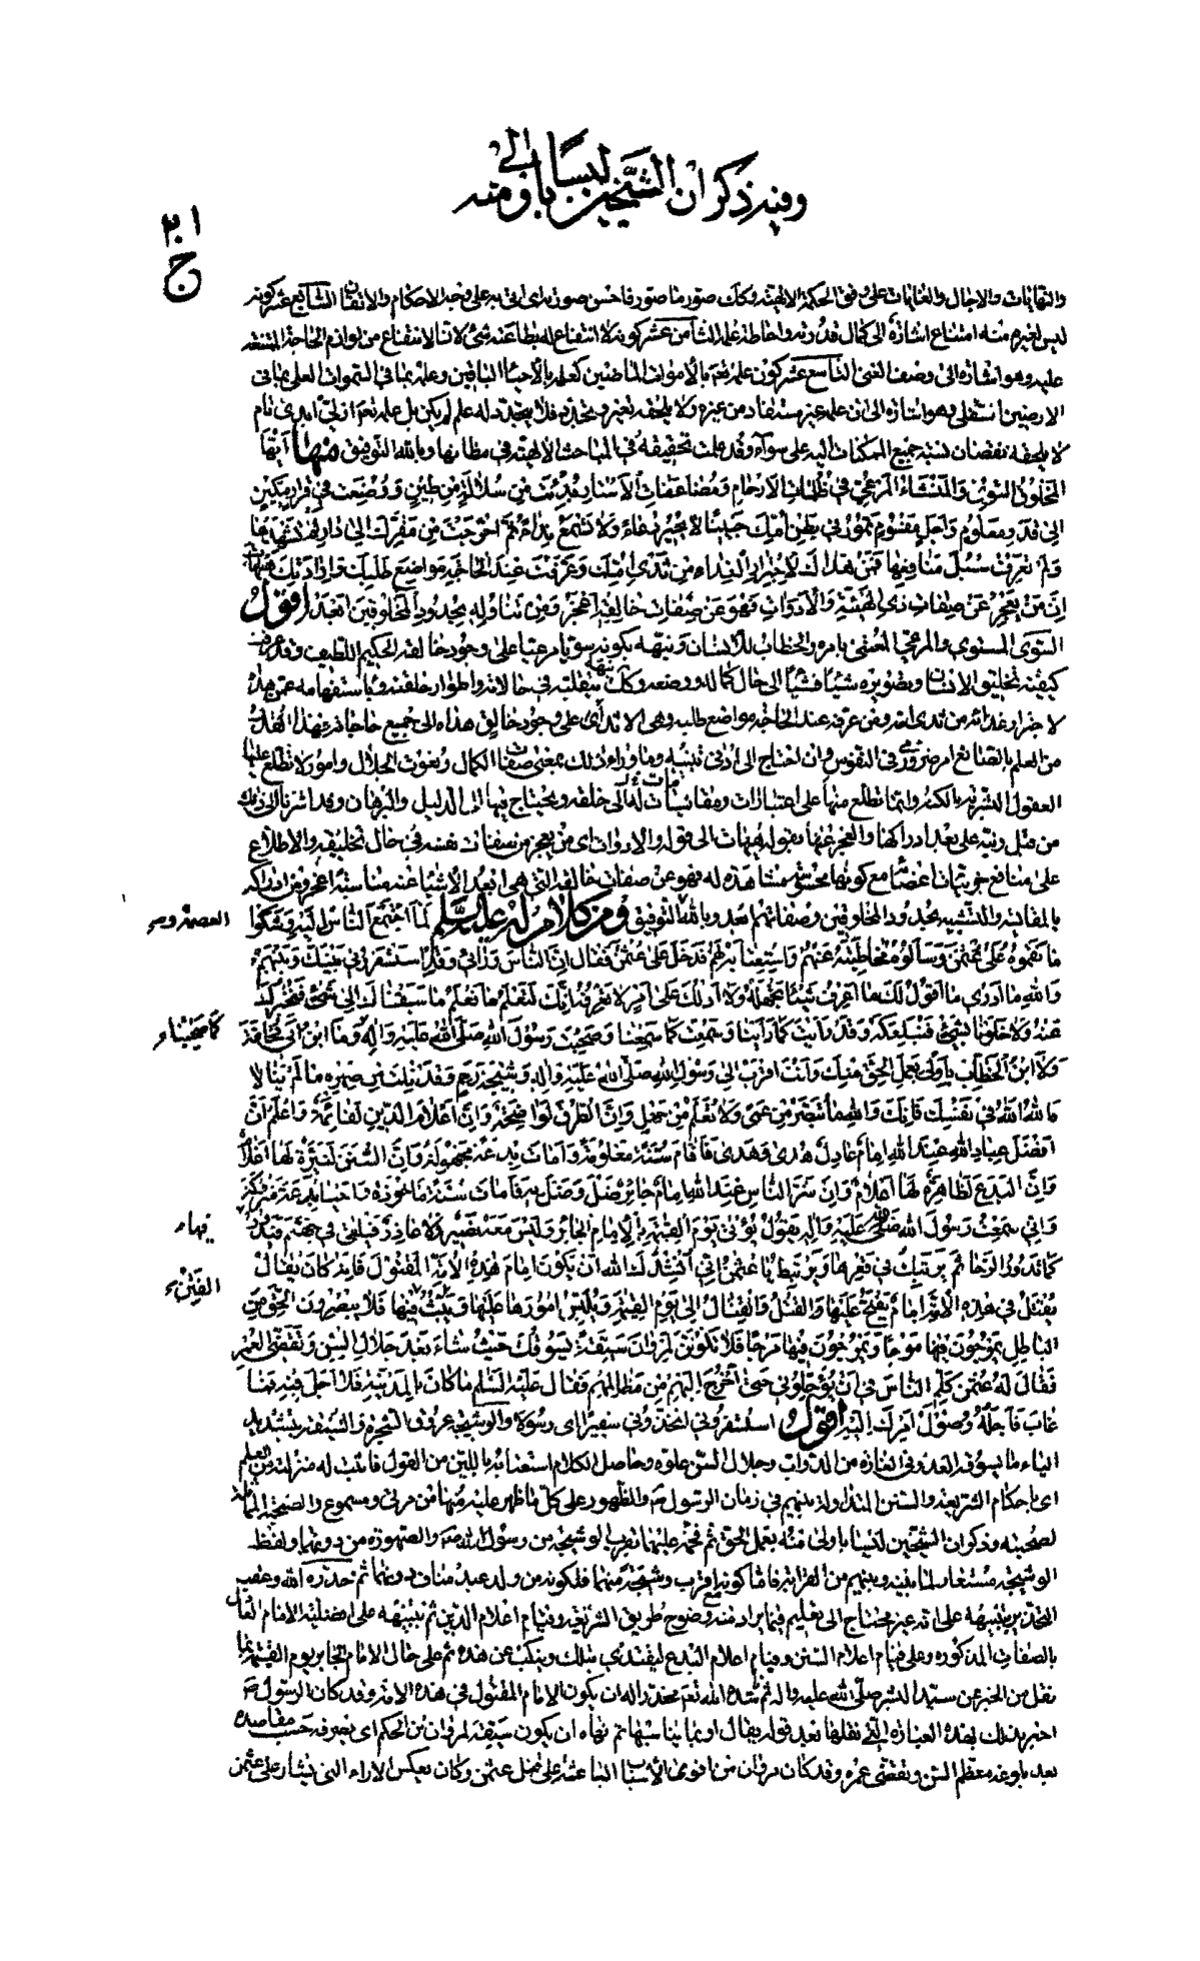 وفيه ذكر ان الشيخين ليسا باولى منه
ج ٢٠١
والنهايات والاجال والغايات على وفق الحكمة الالهية وكذلك صور ما صور فاحسن صورته اى اتى به على وجه الاحكام والاتقان السابع عشر كونه
ليس لغيره منه امتناع اشارة الى كمال قدرته واحاطة علمه الثامن عشر كونه لا انتفاع له بطاعة شئ لان الانتفاع من لوازم الحاجة الممتنعة
عليه وهو اشارة الى وصف الغنى التاسع عشر كون علمه تعم بالاموات الماضين كعلمه بالأحياء الباقين وعلمه بما فى السموات العلى بما فى
الارضين السفلى وهو اشارة الى ان علمه غير مستفاد من غيره ولا يلحقه تغير وتجدد فلا يتجدد له علم لم يكن بل علمه تعم ازلى ابدى تام
لا يلحقه نقصان نسبة جميع الممكنات اليه على سواء وقد علمت تحقيقه فى المباحث الالهية فى مظانها وبالله التوفيق منها أيّها
المخلوق السوىّ والمنشأ المرعىّ فى ظلمات الارحام ومضاعفات الأستار بدئت من سلالة من طين ووضعت فى قرار مكين
الى قدر معلوم واجل مقسوم تمور فى بطن امّك جنينا لا تحير دعاء ولا تسمع نداء ثم اخرجت من مقرّك الى دار لم تشهدها
ولم تعرف سبل منافعها فمن هداك لاجترار الغذاء من ثدى امّك وعرّفك عند الحاجة مواضع طلبك وارادتك هيهات
انّ من يعجز عن صفات ذى الهيئة والأدوات فهو عن صفات خالقه اعجز ومن تناوله بحدود المخلوقين ابعد اقول
السوى المستوى والمرعى المعتنى بامره والخطاب للانسان ونبهه بكونه سويا مرعيا على وجود خالقه الحكيم اللطيف وقد عرفت
كيفية تخليق الانسان وتصويره شيئا فشيئا الى حال كماله ووضعه وكذلك نبّهه بتقلبه فى حالاته واطوار خلقته وباستفهامه عمن هداه
لاجترار غذائه من ثدى امه ومن عرفه عند الحاجة مواضع طلبه وهى الاثداء على وجود خالق هداه الى جميع حاجاته فهذا القدر
من العلم بالصانع امر ضرورى فى النفوس وان احتاج الى أدنى تنبيه وما وراء ذلك بمعنى صفات الكمال ونعوت الجلال وامور لا تطلع عليها
العقول البشرية بالكنه وانما تطلع منها على اعتبارات ومقايسات له الى خلقه ويحتاج فيها الى الدليل والبرهان وقد اشرنا الى ذلك
من قبل ونبه على بعد ادراكها والعجز عنها بقوله هيهات الى قوله والادوات اى من يعجز من صفات نفسه فى حال تخليقه والاطلاع
على منافع جزئيات اعضائه مع كونها محسوسة مشاهدة له فهو عن صفات خالقه التى هى ابعد الاشياء عنه مناسبة اعجز ومن ادراكه
بالمقايسة والتشبيه بحدود المخلوقين وصفاتهم ابعد وبالله التوفيق ومن كلام له عليه السلم لمّا اجتمع النّاس اليه وشكوا
ما نقموه على عثمن وسألوه مخاطبته عنهم واستعتابه لهم فدخل على عثمن فقال انّ النّاس ورائى وقد استسفرونى بينك وبينهم
والله ما ادرى ما اقول لك ما اعرف شيئا تجهله ولا ادلّك على امر لا تعرفه انّك لتعلم ما نعلم ما سبقناك الى شئ فنخبرك
عنه ولا خلونا بشئ فنبلغكه وقد رأيت كما رأينا وسمعت كما سمعنا وصحبت رسول الله صلّى الله عليه واله وما ابن أبى قحافة
ولا ابن الخطّاب باولى بعمل الحقّ منك وأنت اقرب الى رسول الله صلّى الله عليه واله وشيجة رحم وقد نلت من صهره ما لم ينالا
فالله الله فى نفسك فانّك والله ما تبصّر من عمى ولا تعلّم من جهل وانّ الطّرق لواضحة وانّ اعلام الدّين لقائمة واعلم انّ
افضل عباد الله عند الله امام عادل هدى وهدى فاقام سنّة معلومة وامات بدعة مجهولة وانّ السّنن لنيّرة لها اعلام
وانّ البدع لظاهرة لها اعلام وانّ شرّ النّاس عند الله امام جائر ضلّ وضلّ به فامات سنّة مأخوذة واحيا بدعة متروكة
وانى سمعت رسول الله صلّى الله عليه واله يقول يؤتى يوم القيمة بالامام الجائر وليس معه نصير ولا عاذر فيلقى فى جهنّم فيدور
كما تدور الرّحا ثم يرتبك فى قعرها ويرتبط يا عثمن انّى انشدك الله أن تكون امام هذه الامّة المقتول فانه كان يقال
يقتل فى هذه الامّة امام يفتح عليها القتل والقتال الى يوم القيمة ويلبس امورها عليها ويبثّ فيها فلا يبصرون الحقّ من
الباطل يموجون فيها موجا ويمرجون فيها مرجا فلا تكوننّ لمروان سيّقة يسوقك حيث شاء بعد جلال السّنّ وتقضّى العمر
فقال له عثمن كلّم النّاس فى أن يؤجّلونى حتّى اخرج اليهم من مظالمهم فقال عليه السّلم ما كان بالمدينة فلا اجل فيه وما
غاب فاجله وصول امرك اليه اقول استسفرونى اتخذونى سفيرا اى رسولا والوشيجة عروق الشجرة والسيّقة بتشديد
الياء ما يسوقه العدو فى الغارة من الدواب وجلال السن علوه وحاصل الكلام استعتابه باللين من القول فاثبت له منزلته من العلم
اى باحكام الشريعة والسنن المتداولة بينهم فى زمان الرسول صم والظهور على كل ما ظهر عليه منها من مرئى ومسموع والصحبة المماثلة
لصحبته وذكر ان الشيخين ليسا باولى منه بعمل الحق ثم فخمه عليهما بقرب الوشيجة من رسول الله صم والصهورة من دونهما ولفظ
الوشيجة مستعار لما بينه وبينهم من القرابة فاما كونه اقرب وشيجة منهما فلكونه من ولد عبد مناف دونهما ثم حذره الله وعقب
التحذير بتنبيهه على انه غير محتاج الى تعليم فيما يراد منه مع وضوح طريق الشريعة وقيام اعلام الدين ثم بتنبهه على افضلية الامام العادل
بالصفات المذكورة وعلى قيام اعلام السنن وقيام اعلام البدع ليقتدى بتلك وينكب عن هذه ثم على حال الامام الجاير يوم القيمة بما
نقل من الخبر عن سيد البشر صلّى الله عليه واله ثم نشده الله تعم محذرا له ان يكون الامام المقتول فى هذه الامة وقد كان الرسول ص
اخبر بذلك بهذه العبارة التى نقلها بعد قوله يقال او بما يناسبها ثم نهاه ان يكون سيقة لمروان بن الحكم اى يصرفه حسب مقاصده
بعد بلوغه معظم السن وتقضى عمره وقد كان مروان من اقوى الاسباب الباعثة على قتل عثمن وكان يعكس الاراء التى يشار على عثمن
كما صحبناه
فيها
الفتن